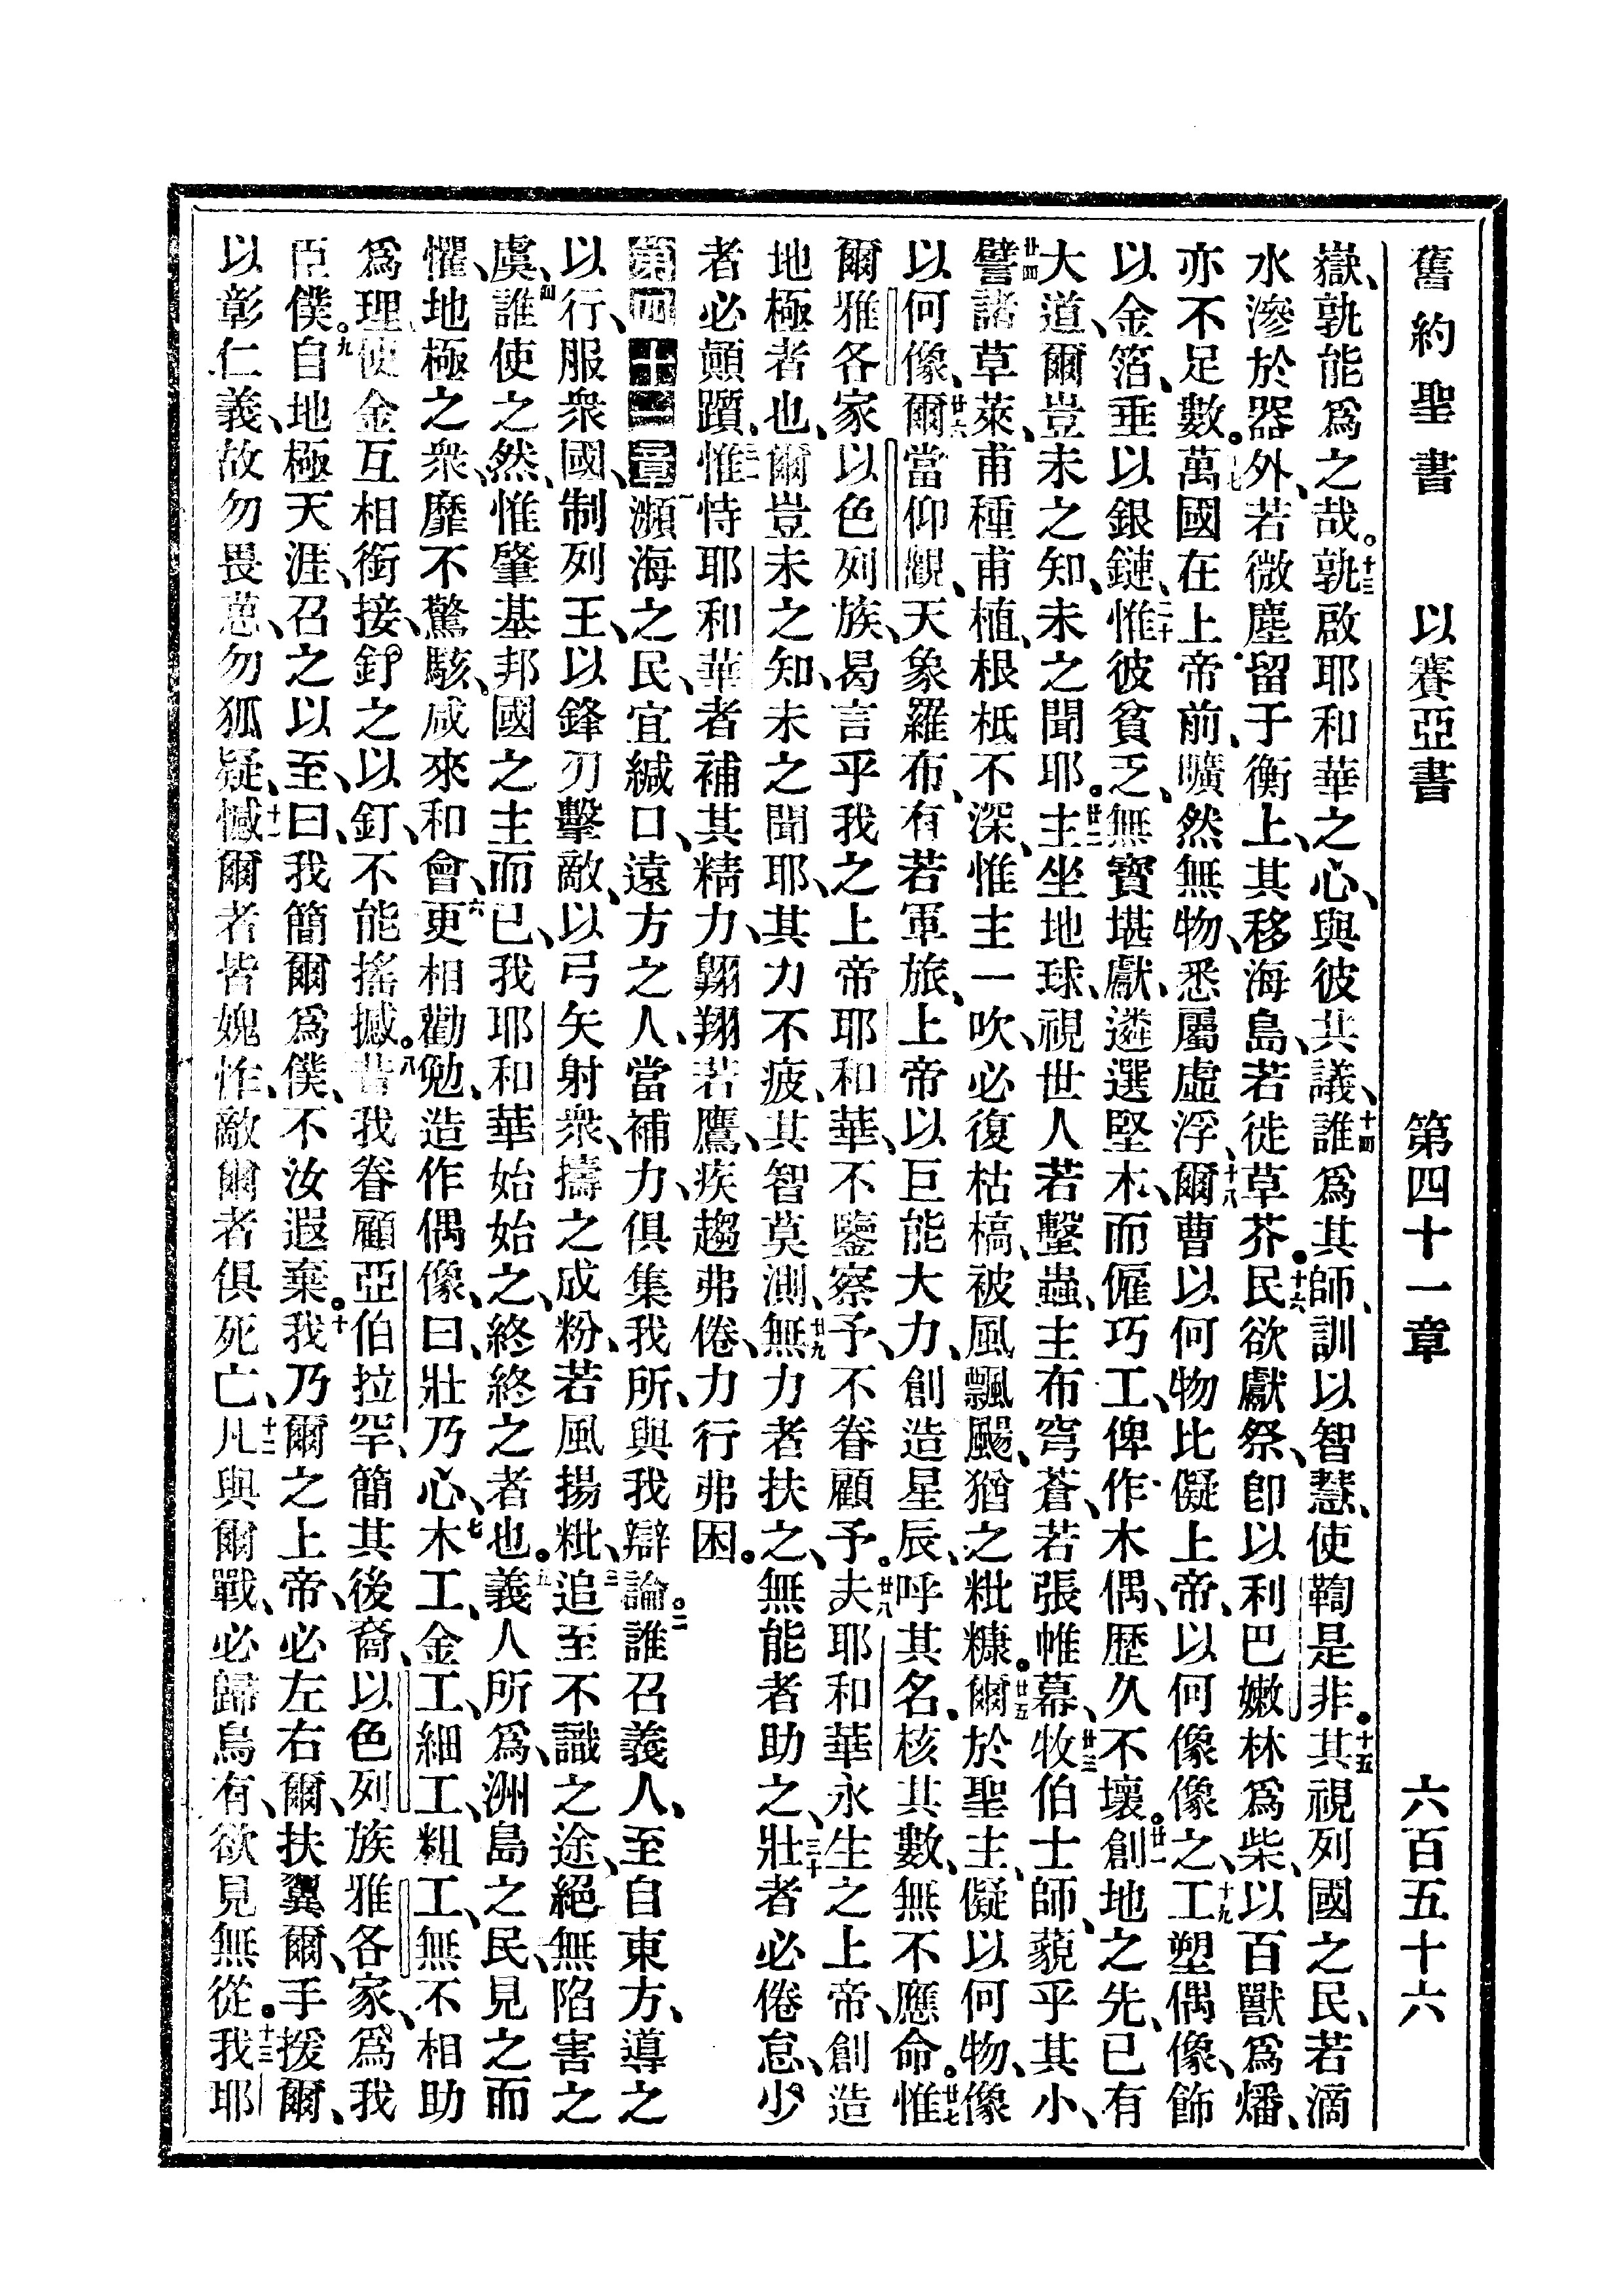 舊約聖書 以賽亞書 第四十一章 六百五十六
嶽、孰能爲之哉。十三孰啟耶和華之心、與彼共議、十四誰爲其師、訓以智慧、使鞫是非。十五其視列國之民、若滴
水滲於器外、若微塵留于衡上、其移海島、若徙草芥。十六民欲獻祭、卽以利巴嫩林爲柴、以百獸爲燔、
亦不足數。十七萬國在上帝前、曠然無物、悉屬虛浮、十八爾曹以何物比儗上帝、以何像像之、十九工塑偶像、飾
以金箔、垂以銀鏈、二十惟彼貧乏、無寶堪獻、遴選堅木、而僱巧工、俾作木偶、歷久不壞。廿一創地之先、已有
大道、爾豈未之知、未之聞耶。廿二主坐地球、視世人若蟿蟲、主布穹蒼、若張帷幕、廿三牧伯士師、藐乎其小、
廿四譬諸草萊、甫種甫植、根柢不深、惟主一吹、必復枯槁、被風飄颺、猶之粃糠。廿五爾於聖主、儗以何物、像
以何像、廿六爾當仰觀、天象羅布、有若軍旅、上帝以巨能大力、創造星辰、呼其名、核其數、無不應命。廿七惟
爾雅各家以色列族、曷言乎我之上帝耶和華、不鑒察予、不眷顧予。廿八夫耶和華永生之上帝、創造
地極者也、爾豈未之知、未之聞耶、其力不疲、其智莫測、廿九無力者扶之、無能者助之、三十壯者必倦怠、少
者必顚躓、三一惟恃耶和華者、補其精力、翺翔若鷹、疾趨弗倦、力行弗困。
第四十一章 一瀕海之民、宜緘口、遠方之人、當補力、俱集我所、與我辯論。二誰召義人、至自東方、導之
以行、服衆國、制列王、以鋒刃擊敵、以弓矢射衆、擣之成粉、若風揚粃、三追至不識之途、絕無陷害之
虞、四誰使之然、惟肇基邦國之主而已、我耶和華始始之、終終之者也。五義人所爲、洲島之民、見之而
懼、地極之衆、靡不驚駭、咸來和會、六更相勸勉、造作偶像、曰、壯乃心、七木工、金工、細工、粗工、無不相助
爲理、使金互相銜接、釬之以釘、不能搖撼。八昔我眷顧亞伯拉罕、簡其後裔、以色列族雅各家、爲我
臣僕。九自地極天涯、召之以至、曰、我簡爾爲僕、不汝遐棄。十我乃爾之上帝、必左右爾、扶翼爾、手援爾、
以彰仁義、故勿畏葸、勿狐疑、十一憾爾者皆媿怍、敵爾者俱死亡、十二凡與爾戰、必歸烏有、欲見無從。十三我耶